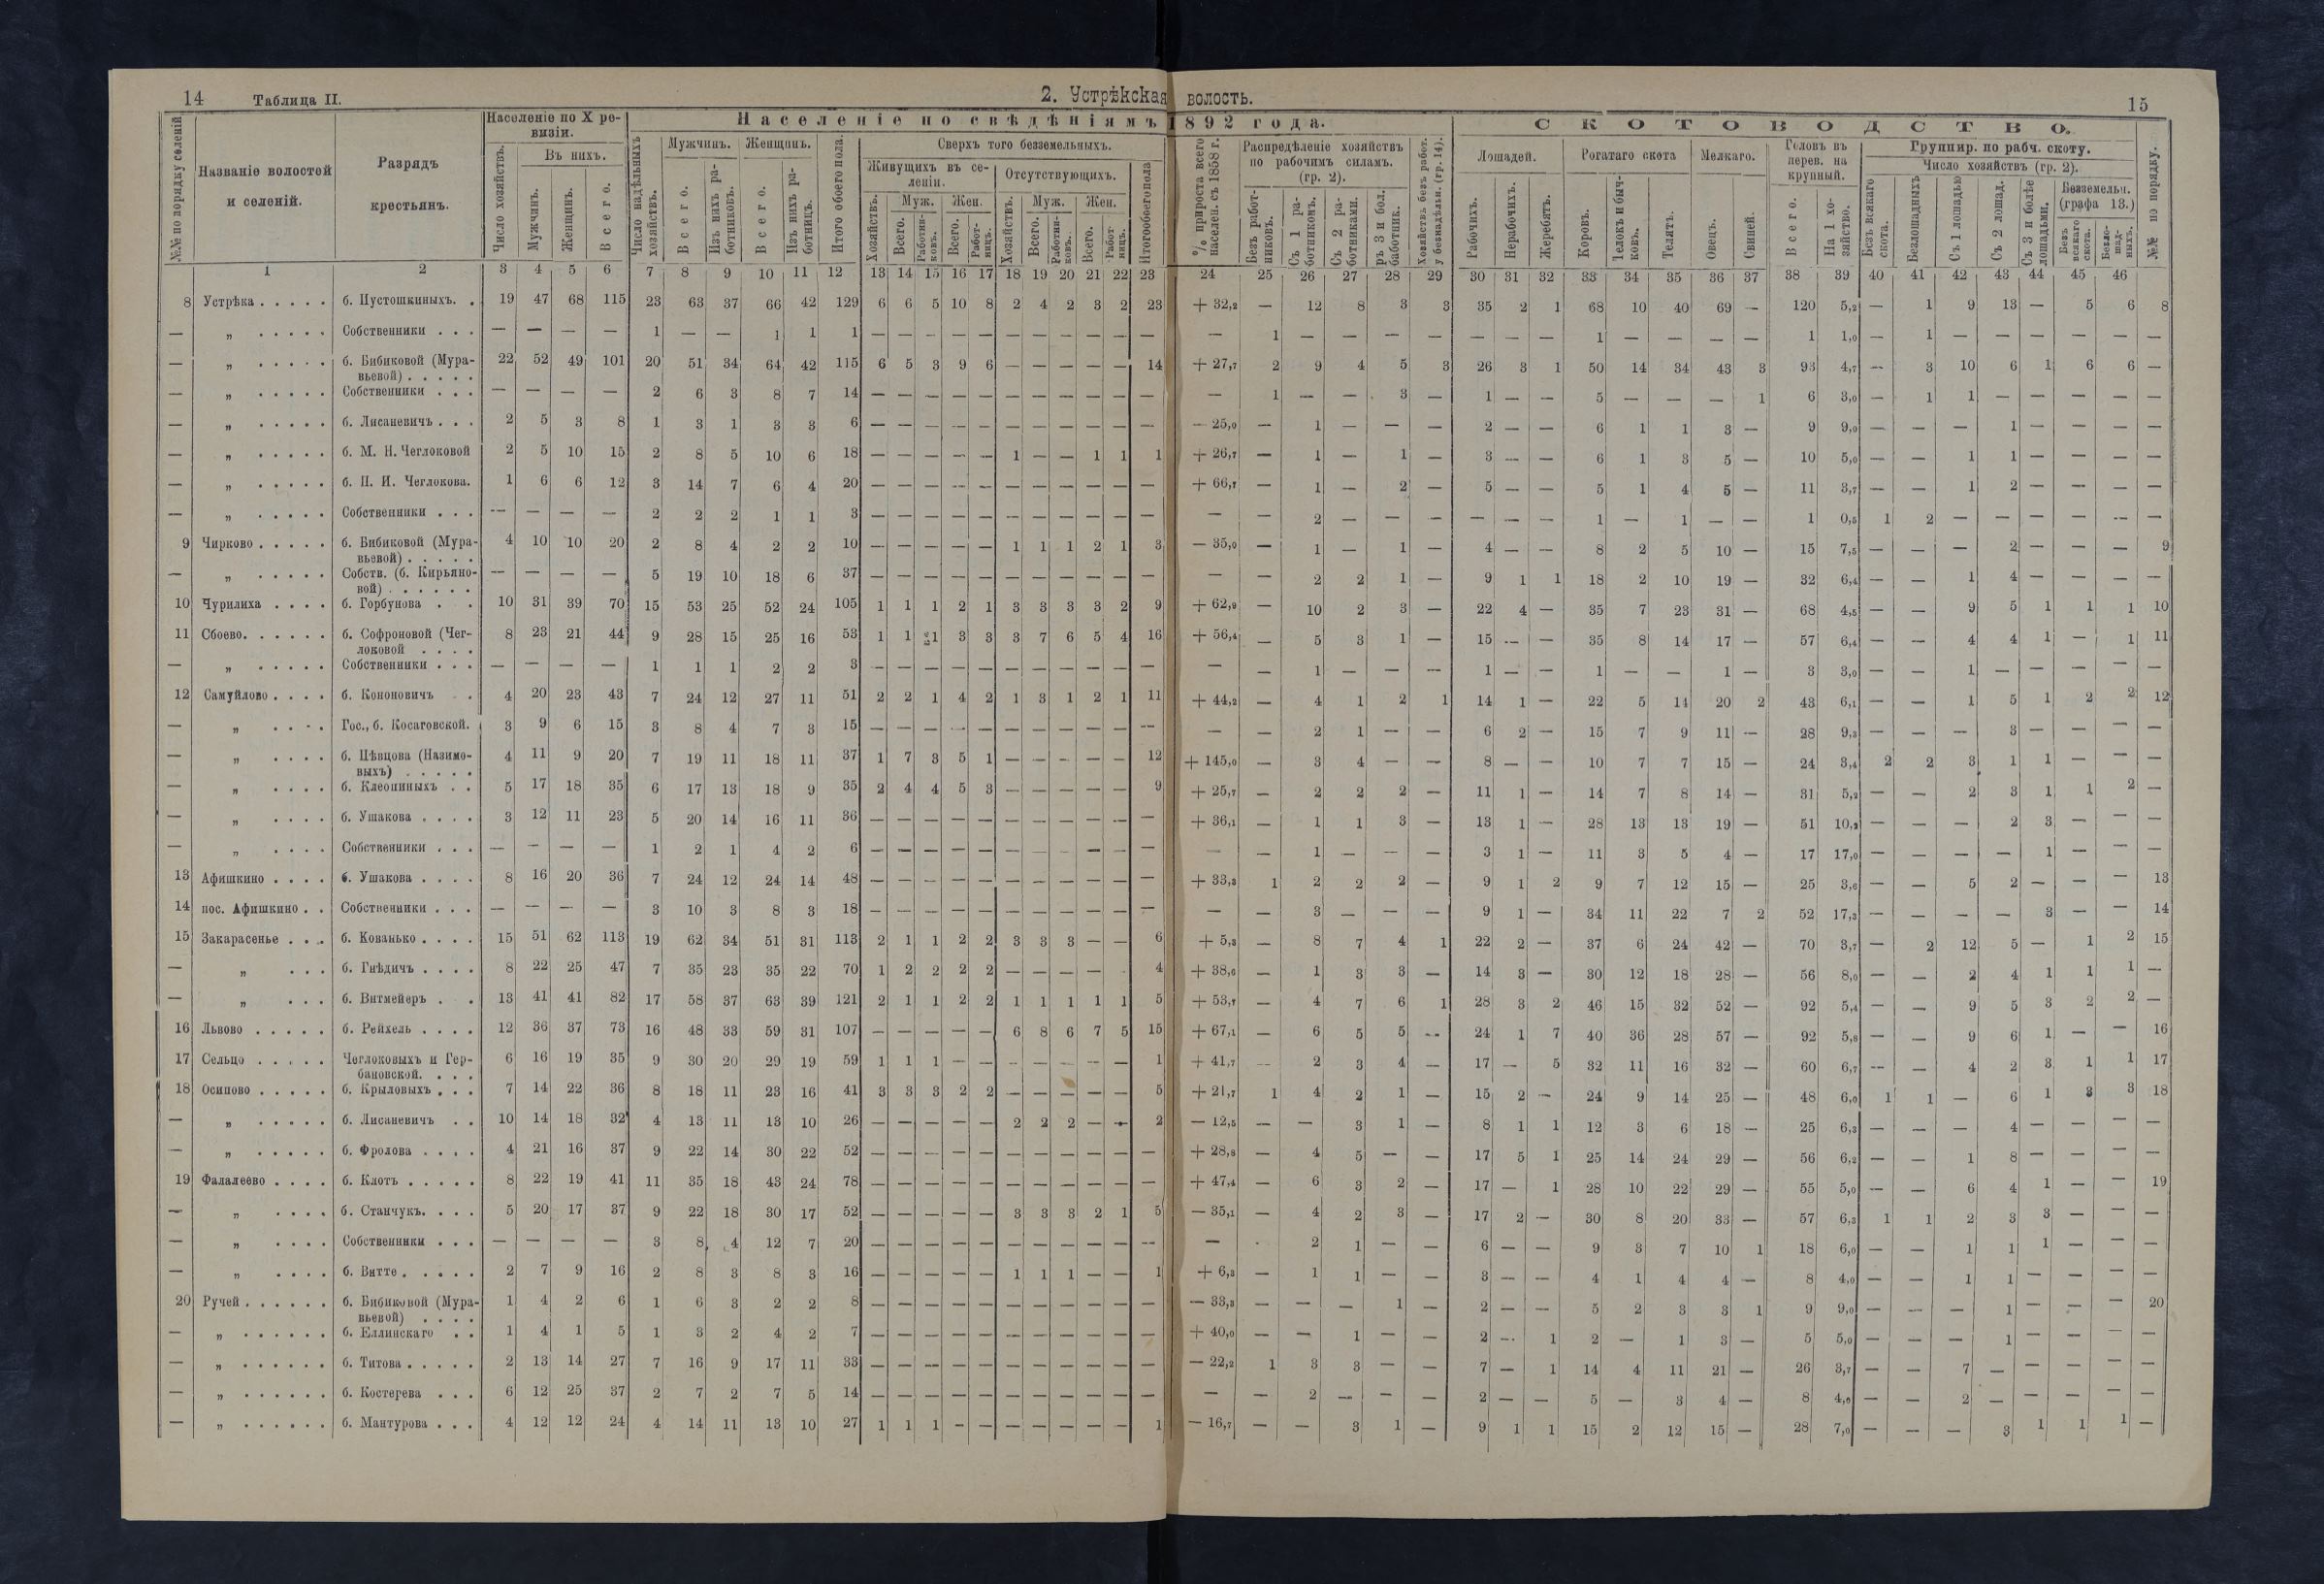 14 Таблица II. 2. Устрѣкская волость. 15
№№ по порядку селеній
Названіе волостей и селеній.
Разрядъ крестьянъ.
Населеніе по X ревизіи.
Число хозяйствъ.
Въ нихъ.
Мужчинъ.
Женщинъ.
Всего.
Населеніе по свѣдѣніямъ 1892 года.
Число надѣльныхъ хозяйствъ.
Мужчинъ.
Всего.
Изъ нихъ работниковъ.
Женщинъ.
Всего.
Изъ нихъ работницъ.
Итого обоего пола.
Сверхъ того безземельныхъ.
Живущихъ въ селеніи.
Хозяйствъ.
Муж.
Всего.
Работниковъ.
Жен.
Всего.
Работницъ.
Отсутствующихъ.
Хозяйствъ.
Муж.
Всего.
Работниковъ.
Жен.
Всего.
Работницъ.
Итого обоего пола
% прироста всего населен. съ 1858 г.
Распредѣленіе хозяйствъ по рабочимъ силамъ. (гр. 2).
Безъ работниковъ.
Съ 1 работникомъ.
Съ 2 работниками.
Хозяйствъ безъ работ. у безнадѣльн. (гр. 14).
СКОТОВОДСТВО.
Лошадей.
Рабочихъ.
Нерабочихъ.
Жеребятъ.
Рогатаго скота
Коровъ.
Телокъ и бычковъ.
Телятъ.
Мелкаго.
Овецъ.
Свиней.
Головъ въ перев. на крупный.
Всего.
На 1 хозяйство.
Группир. по рабч. скоту.
Число хозяйствъ (гр. 2).
Безъ всякаго скота.
Безлошадныхъ
Съ 1 лошадью
Съ 2 лошад.
Съ 3 и болѣе лошадьми.
Безземельн. (графа 13.)
Безъ всякаго скота.
Безлошадныхъ.
№№ по порядку.
1 2 3 4 5 6 7 8 9 10 11 12 13 14 15 16 17 18 19 20 21 22 23 24 25 26 27 28 29 30 31 32 33 34 35 36 37 38 39 40 41 42 43 44 45 46
8 Устрѣка . . . . . б. Пустошкиныхъ. . 19 47 68 115 23 63 37 66 42 129 6 6 5 10 8 2 4 2 3 2 23 + 32,2 — 12 8 3 3 35 2 1 68 10 40 69 — 120 5,2 — 1 9 13 — 5 6 8
— „ . . . . . Собственники . . . — — — — 1 — — 1 1 1 — — — — — — — — — — — — 1 — — — — — — — 1 — — — — 1 1,0 — 1 — — — — — —
— „ . . . . . б. Бибиковой (Муравьевой) . . . . . 22 52 49 101 20 51 34 64 42 115 6 5 3 9 6 — — — — — 14 + 27,7 2 9 4 5 3 26 3 1 50 14 34 43 3 93 4,7 — 3 10 6 1 6 6 —
— „ . . . . . Собственники . . . — — — — 2 6 3 8 7 14 — — — — — — — — — — — — 1 — — 3 — 1 — — 5 — — — 1 6 3,0 — 1 1 — — — — —
— „ . . . . . б. Лисаневичъ . . . 2 5 3 8 1 3 1 3 3 6 — — — — — — — — — — — — 25,0 — 1 — — — 2 — — 6 1 1 3 — 9 9,0 — — — 1 — — — —
— „ . . . . . б. М. Н. Чеглоковой 2 5 10 15 2 8 5 10 6 18 — — — — — 1 — — 1 1 1 + 26,7 — 1 — 1 — 3 — — 6 1 3 5 — 10 5,0 — — 1 1 — — — —
— „ . . . . . б. П. И. Чеглокова. 1 6 6 12 3 14 7 6 4 20 — — — — — — — — — — — + 66,7 — 1 — 2 — 5 — — 5 1 4 5 — 11 3,7 — — 1 2 — — — —
— „ . . . . . Собственники . . . — — — — 2 2 2 1 1 3 — — — — — — — — — — — — — 2 — — — — — — 1 — 1 — — 1 0,5 1 2 — — — — — —
9 Чирково . . . . . б. Бибиковой (Муравьевой) . . . . . 4 10 10 20 2 8 4 2 2 10 — — — — — 1 1 1 2 1 3 — 35,0 — 1 — 1 — 4 — — 8 2 5 10 — 15 7,5 — — — 2 — — — 9
— „ . . . . . Собств. (б. Кирьяновой) . . . . . . — — — — 5 19 10 18 6 37 — — — — — — — — — — — — — 2 2 1 — 9 1 1 18 2 10 19 — 32 6,4 — — 1 4 — — — —
10 Чурилиха . . . . б. Горбунова . . 10 31 39 70 15 53 25 52 24 105 1 1 1 2 1 3 3 3 3 2 9 + 62,9 — 10 2 3 — 22 4 — 35 7 23 31 — 68 4,5 — — 9 5 1 1 1 10
11 Сбоево. . . . . . б. Софроновой (Чеглоковой . . . . 8 23 21 44 9 28 15 25 16 53 1 1 1 3 3 3 7 6 5 4 16 + 56,4 — 5 3 1 — 15 — — 35 8 14 17 — 57 6,4 — — 4 4 1 — 1 11
— „ . . . . . Собственники . . . — — — — 1 1 1 2 2 3 — — — — — — — — — — — — — 1 — — — 1 — — 1 — — 1 — 3 3,0 — — 1 — — — — —
12 Самуйлово . . . . б. Кононовичъ . 4 20 23 43 7 24 12 27 11 51 2 2 1 4 2 1 3 1 2 1 11 + 44,2 — 4 1 2 1 14 1 — 22 5 14 20 2 43 6,1 — — 1 5 1 2 2 12
— „ . . . . Гос., б. Косаговской. 3 9 6 15 3 8 4 7 3 15 — — — — — — — — — — — — — 2 1 — — 6 2 — 15 7 9 11 — 28 9,3 — — — 3 — — — —
— „ . . . . б. Пѣвцова (Назимовыхъ) . . . . . 4 11 9 20 7 19 11 18 11 37 1 7 3 5 1 — — — — — 12 + 145,0 — 3 4 — — 8 — — 10 7 7 15 — 24 3,4 2 2 3 1 1 — — —
— „ . . . . б. Клеопиныхъ . . 5 17 18 35 6 17 13 18 9 35 2 4 4 5 3 — — — — — 9 + 25,7 — 2 2 2 — 11 1 — 14 7 8 14 — 31 5,2 — — 2 3 1 1 2 —
— „ . . . . б. Ушакова . . . . 3 12 11 23 5 20 14 16 11 36 — — — — — — — — — — — + 36,1 — 1 1 3 — 13 1 — 28 13 13 19 — 51 10,2 — — — 2 3 — — —
— „ . . . . Собственники . . . — — — — 1 2 1 4 2 6 — — — — — — — — — — — — — 1 — — — 3 1 — 11 3 5 4 — 17 17,0 — — — — 1 — — —
13 Афишкино . . . . б. Ушакова . . . . 8 16 20 36 7 24 12 24 14 48 — — — — — — — — — — — + 33,3 1 2 2 2 — 9 1 2 9 7 12 15 — 25 3,6 — — 5 2 — — — 13
14 пос. Афишкино . . Собственники . . . — — — — 3 10 3 8 3 18 — — — — — — — — — — — — — 3 — — — 9 1 — 34 11 22 7 2 52 17,3 — — — — 3 — — 14
15 Закарасенье . . . б. Кованько . . . . 15 51 62 113 19 62 34 51 31 113 2 1 1 2 2 3 3 3 — — 6 + 5,3 — 8 7 4 1 22 2 — 37 6 24 42 — 70 3,7 — 2 12 5 — 1 2 15
— „ . . . б. Гнѣдичъ . . . . 8 22 25 47 7 35 23 35 22 70 1 2 2 2 2 — — — — 4 + 38,6 — 1 3 3 — 14 3 — 30 12 18 28 — 56 8,0 — — 2 4 1 1 1 —
— „ . . . б. Витмейеръ . . 13 41 41 82 17 58 37 63 39 121 2 1 1 2 2 1 1 1 1 1 5 + 53,7 — 4 7 6 1 28 3 2 46 15 32 52 — 92 5,4 — — 9 5 3 2 2 —
16 Львово . . . . . б. Рейхель . . . . 12 36 37 73 16 48 33 59 31 107 — — — — — 6 8 6 7 5 15 + 67,1 — 6 5 5 — 24 1 7 40 36 28 57 — 92 5,8 — — 9 6 1 — — 16
17 Сельцо . . . . . Чеглоковыхъ и Гербановской. . . . 6 16 19 35 9 30 20 29 19 59 1 1 1 — — — — — — — 1 + 41,7 — 2 3 4 — 17 — 5 32 11 16 32 — 60 6,7 — — 4 2 3 1 1 17
18 Осипово . . . . . б. Крыловыхъ . . . 7 14 22 36 8 18 11 23 16 41 3 3 3 2 2 — — — — — 5 + 21,7 1 4 2 1 — 15 2 — 24 9 14 25 — 48 6,0 1 1 — 6 1 3 3 18
— „ . . . . . б. Лисаневичъ . . 10 14 18 32 4 13 11 13 10 26 — — — — — 2 2 2 — — 2 — 12,5 — — 3 1 — 8 1 1 12 3 6 18 — 25 6,3 — — — 4 — — — —
— „ . . . . . б. Фролова . . . . 4 21 16 37 9 22 14 30 22 52 — — — — — — — — — — — + 28,8 — 4 5 — — 17 5 1 25 14 24 29 — 56 6,2 — — 1 8 — — — —
19 Фалалеево . . . . б. Клотъ . . . . . 8 22 19 41 11 35 18 43 24 78 — — — — — — — — — — — + 47,4 — 6 3 2 — 17 — 1 28 10 22 29 — 55 5,0 — — 6 4 1 — — 19
— „ . . . . б. Станчукъ. . . . 5 20 17 37 9 22 18 30 17 52 — — — — — 3 3 3 2 1 5 — 35,1 — 4 2 3 — 17 2 — 30 8 20 33 — 57 6,3 1 1 2 3 3 — — —
— „ . . . . Собственники . . . — — — — 3 8 4 12 7 20 — — — — — — — — — — — — 2 1 — — 6 — — 9 3 7 10 1 18 6,0 — — 1 1 1 — — —
— „ . . . . б. Витте . . . . . 2 7 9 16 2 8 3 8 3 16 — — — — — 1 1 1 — — 1 + 6,3 — 1 1 — — 3 — — 4 1 4 4 — 8 4,0 — — 1 1 — — — —
20 Ручей . . . . . . б. Бибиковой (Муравьевой) . . . . 1 4 2 6 1 6 3 2 2 8 — — — — — — — — — — — — 33,3 — — — 1 — 2 — — 5 2 3 3 1 9 9,0 — — — 1 — — — 20
— „ . . . . . . б. Еллинскаго . . 1 4 1 5 1 3 2 4 2 7 — — — — — — — — — — — + 40,0 — — 1 — — 2 — 1 2 — 1 3 — 5 5,0 — — — 1 — — — —
— „ . . . . . . б. Титова . . . . . 2 13 14 27 7 16 9 17 11 33 — — — — — — — — — — — — 22,2 1 3 3 — — 7 — 1 14 4 11 21 — 26 3,7 — — 7 — — — — —
— „ . . . . . . б. Костерева . . . 6 12 25 37 2 7 2 7 5 14 — — — — — — — — — — — — — 2 — — — 2 — — 5 — 3 4 — 8 4,0 — — 2 — — — — —
— „ . . . . . . б. Мантурова . . . 4 12 12 24 4 14 11 13 10 27 1 1 1 — — — — — — — 1 — 16,7 — — 3 1 — 9 1 1 15 2 12 15 — 28 7,0 — — — 3 1 1 1 —